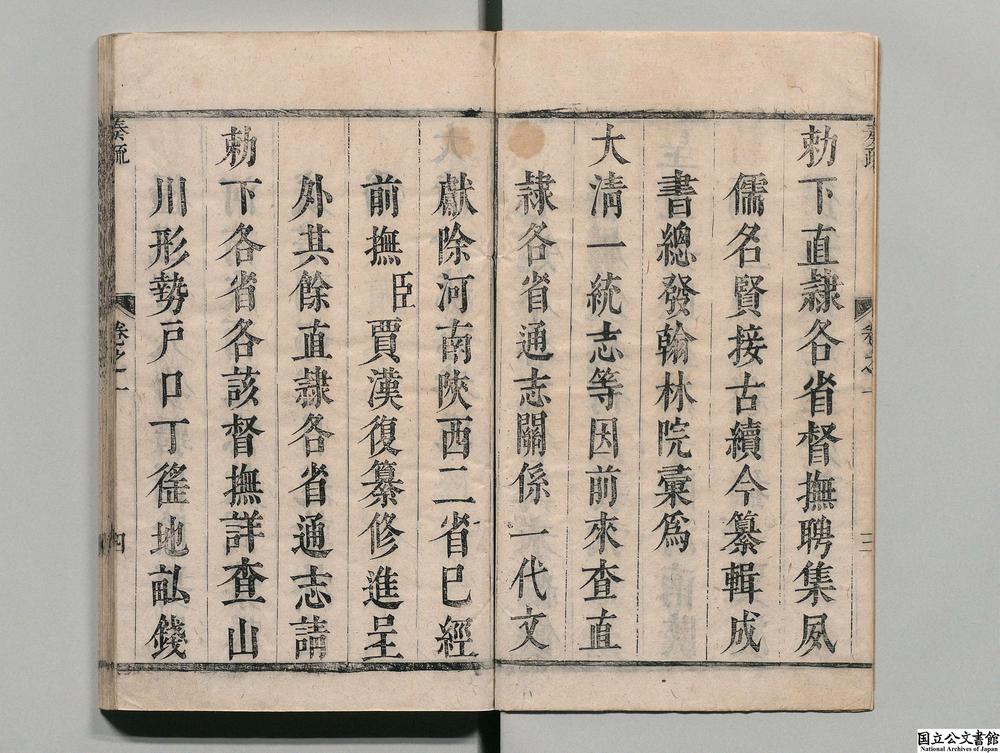 勅下直隷各省督撫聘集夙
儒名賢接古續今纂輯成
書總發翰林院彙爲
大清一統志等因前來查直
隷各省通志關係一代文
獻除河南陝西二省已經
前撫臣賈漢復纂修進呈
外其餘直隷各省通志請
勅下各省各該督撫詳查山
川形勢戸口丁徭地畝錢
奏疏
卷之一
三
奏疏
卷之一
四
国立公文書館
National Archives of Japan